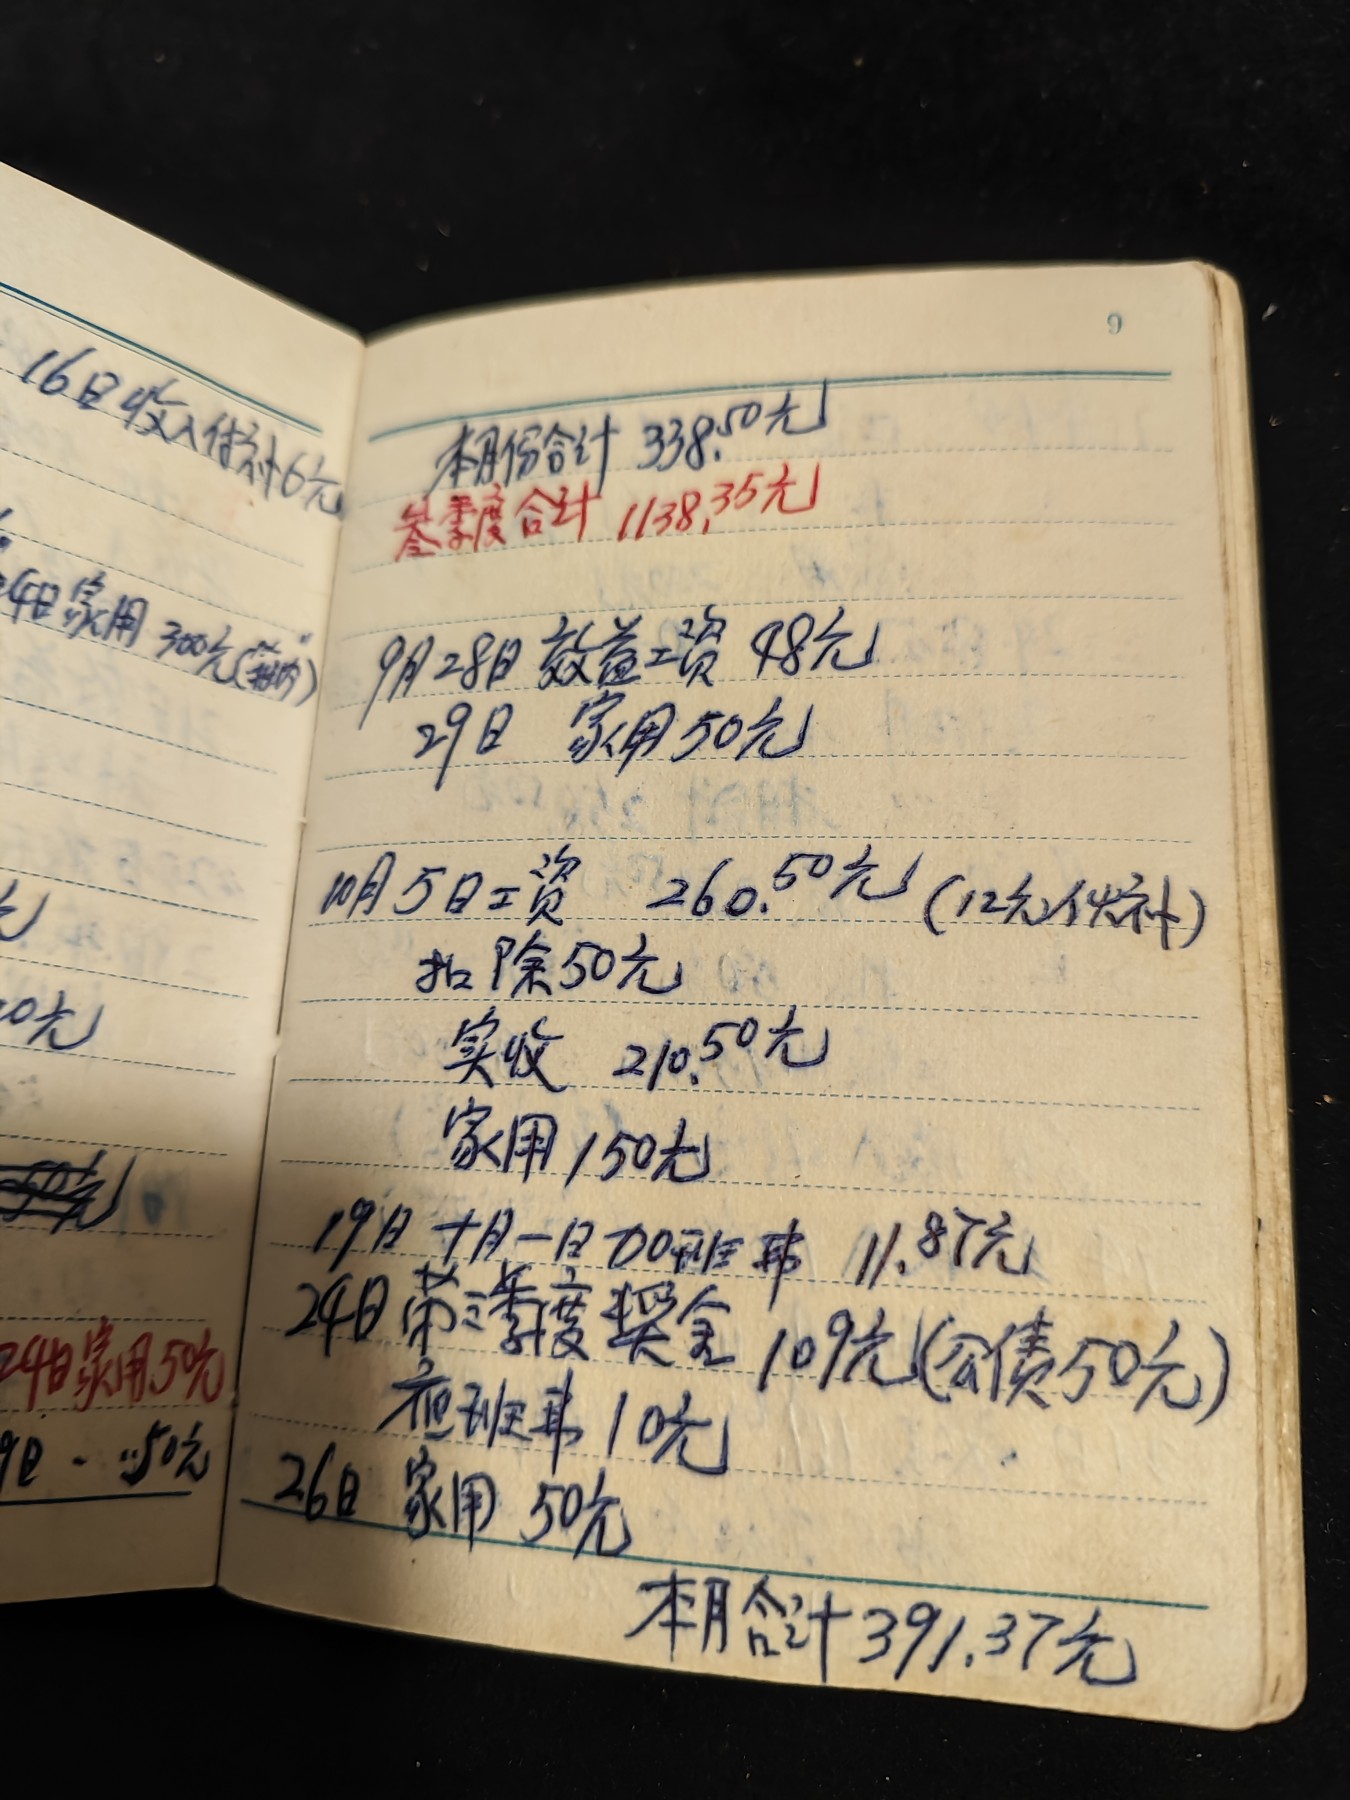 16日收入伙补6元
24日家用300元
元
20元
50元
24日家用50元
9日 - ..50元
9
本月份合计 338.50元
叁季度合计 1138.35元
9月28日 效益工资 48元
29日 家用50元
10月5日工资 260.50元 (12元伙补)
扣除50元
实收 210.50元
家用150元
19日 十月一日加班费 11.87元
24日 第三季度奖金 109元(公债50元)
夜班费 10元
26日 家用 50元
本月合计391.37元